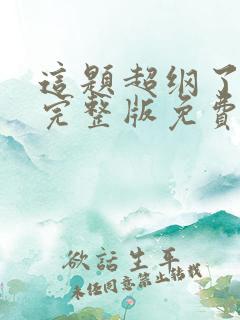 這題超纲了
完整版免費
欲話生平
未经同意禁止转载